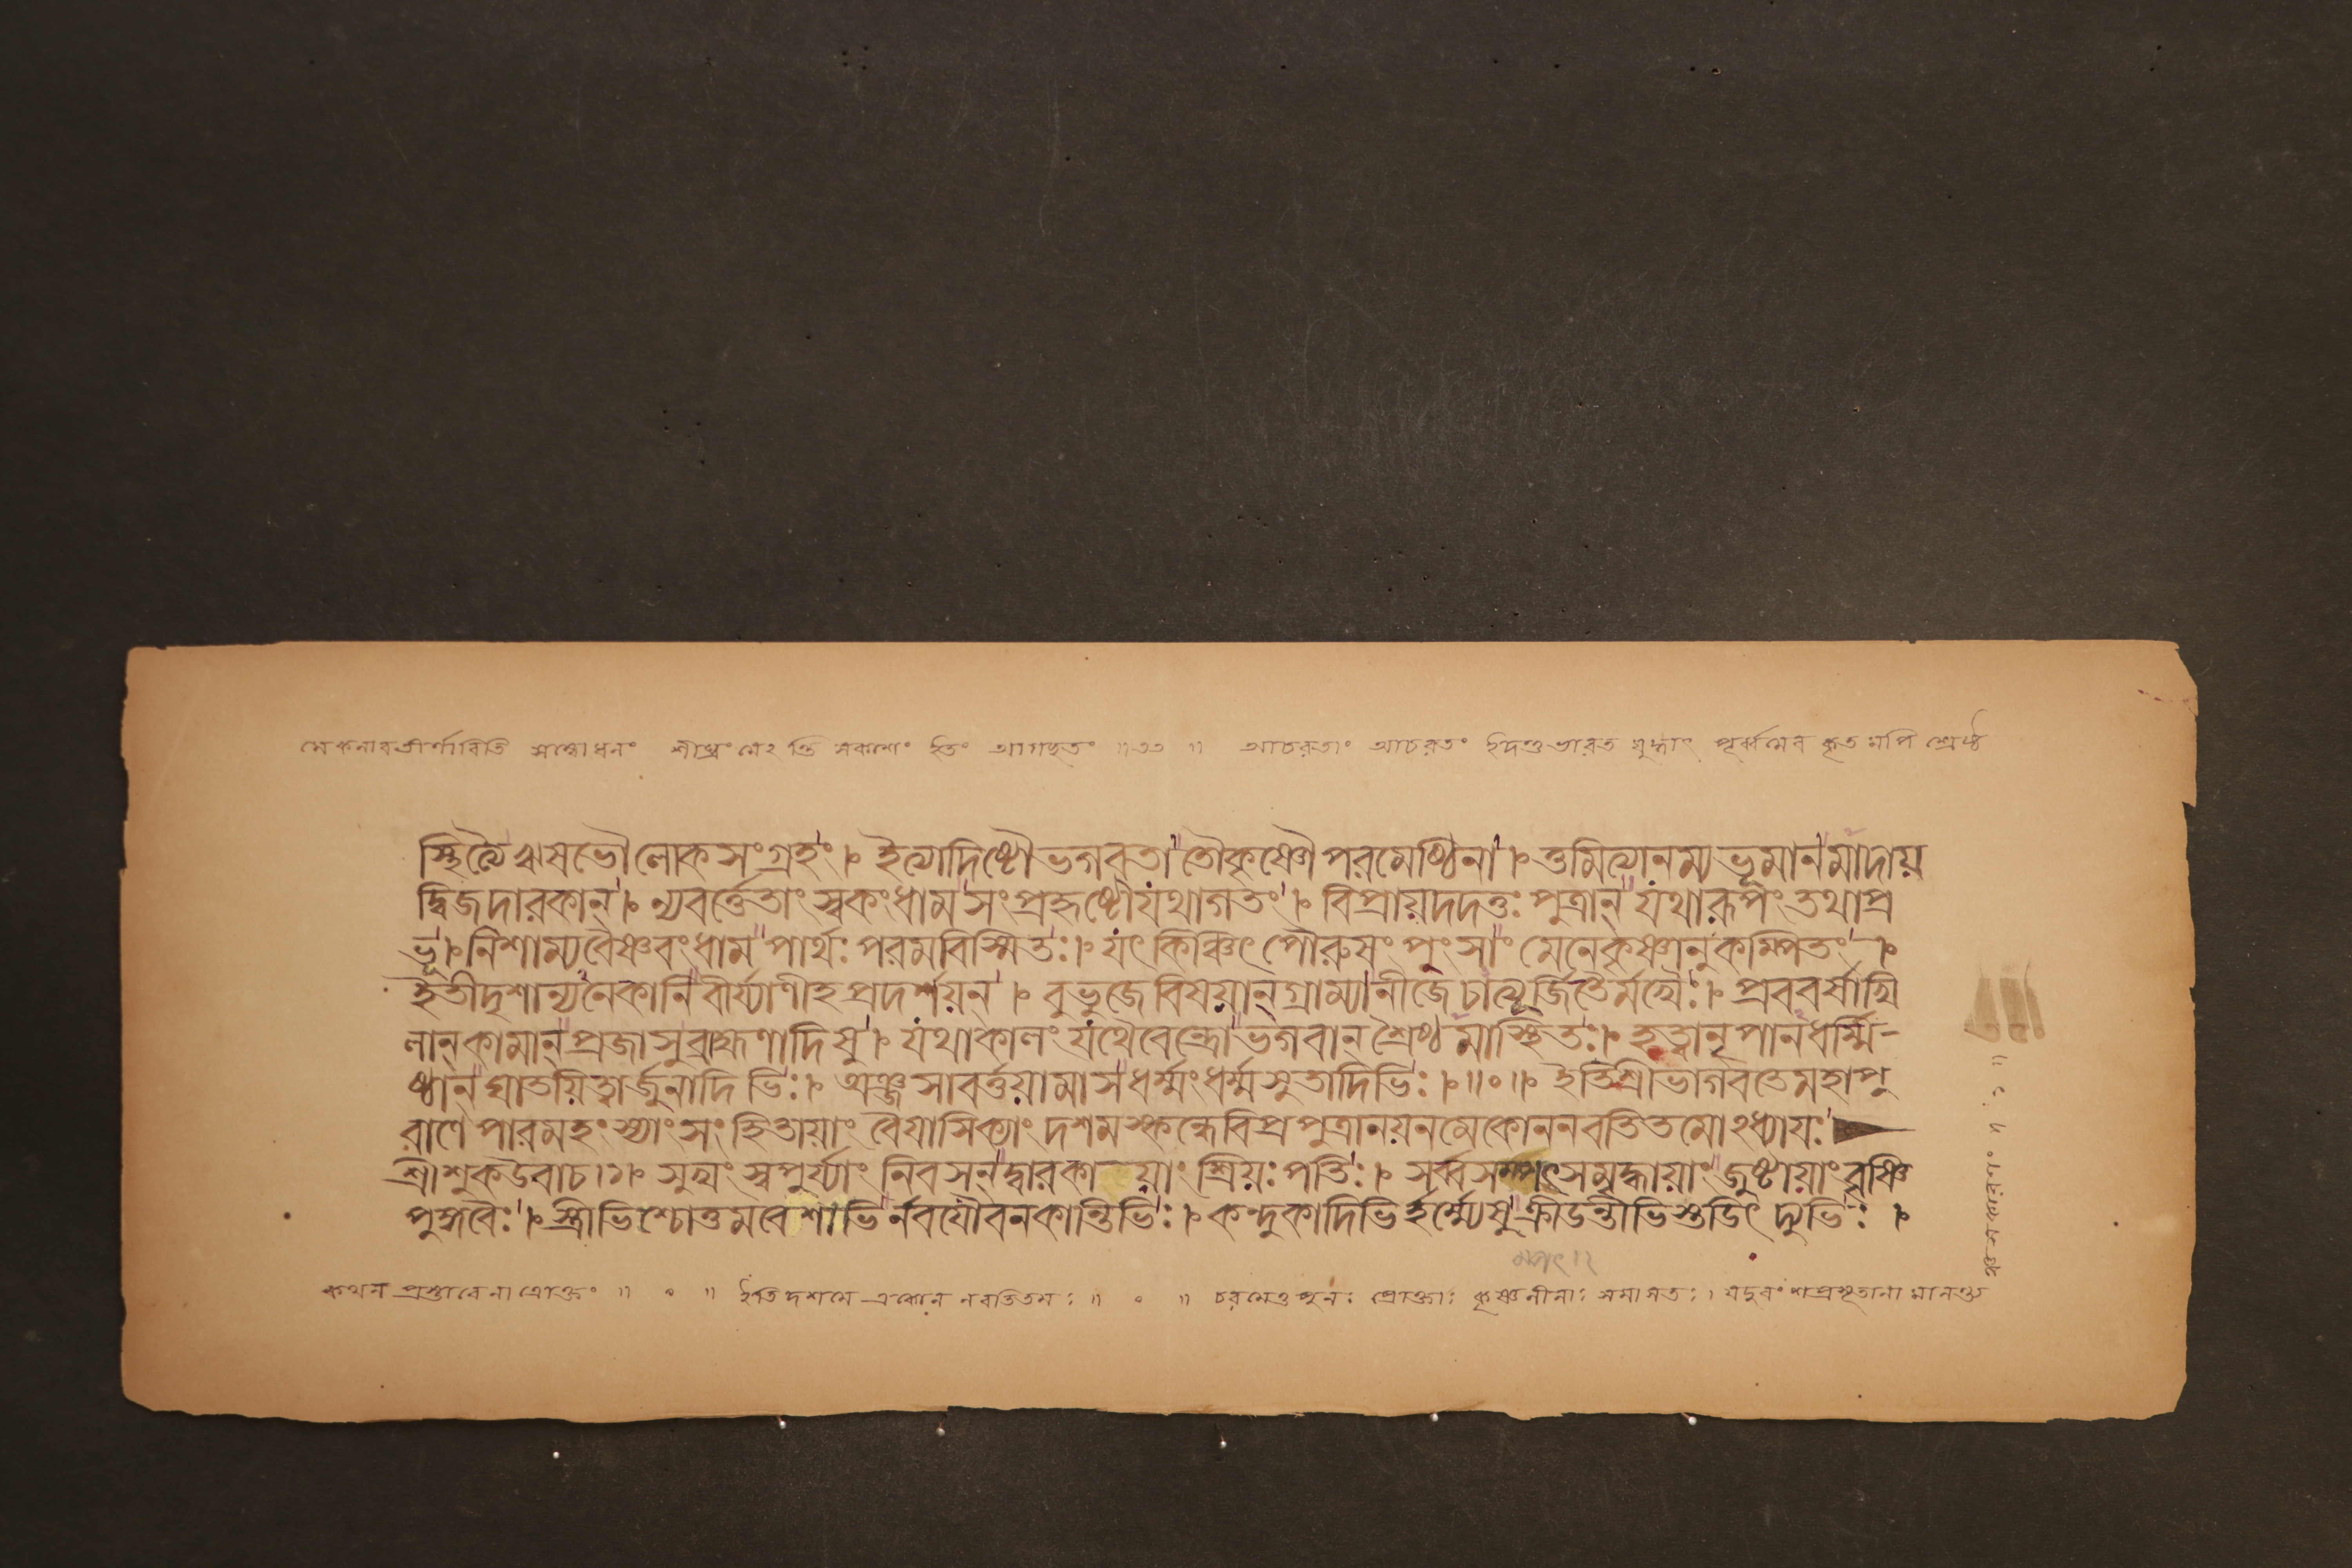 মেকলাবতীর্ণাবিতি সম্বোধনং শীঘ্রং মেঽন্তি সকাশং ইতং আগচ্ছতং ॥৩৩॥ আচরতাং আচরতং ইদন্তু ভারত যুদ্ধাৎ পূর্ব্বমেব কৃতমপি শ্রৈষ্ঠ
স্থিত্যৈঋষভৌলোকসংগ্রহং। ইত্যাদিষ্টৌভগবতাতৌকৃষ্ণৌপরমেষ্ঠিনা। ওমিত্যানম্যভূমানমাদায়
দ্বিজদারকান্। ন্যবর্ত্তেতাং স্বকংধামসংপ্রহৃষ্টৌযথাগতং। বিপ্রায়দদতুঃ পুত্রান্ যথারূপংতথাপ্র
ভূ। নিশাম্যবৈষ্ণবংধাম পার্থঃ পরমবিস্মিতঃ। যৎ কিঞ্চিৎ পৌরুষং পুংসাং মেনেকৃষ্ণানুকম্পিতং।
ইতীদৃশান্যনেকানি বীর্য্যাণীহ প্রদর্শয়ন্। বুভুজে বিষয়ান্ গ্রাম্যানীজে চাত্যূর্জিতৈর্মখৈঃ। প্রববর্ষাখি
লান্ কামান্ প্রজাসুব্রাহ্মণাদিষু। যথাকালং যথৈবেন্দ্রোভগবান্ শ্রৈষ্ঠ্যমাস্থিতঃ। হত্বানৃপানধর্ম্মি-
ষ্ঠান্ ঘাতয়িত্বার্জুনাদিভিঃ। অঞ্জসাবর্ত্তয়ামাসধর্ম্মংধর্ম্মসুতাদিভিঃ।॥০॥ ইতিশ্রীভাগবতেমহাপু
রাণে পারমহংস্যাংসংহিতায়াং বৈয়াসিক্যাং দশমস্কন্ধেবিপ্রপুত্রানয়নমেকোননবতিতমোঽধ্যায়ঃ
শ্রীশুকউবাচ।১। সুখং স্বপুর্য্যাং নিবসন্ দ্বারকায়াং শ্রিয়ঃপতিঃ। সর্ব্বসম্পৎসমৃদ্ধায়াং জুষ্টায়াং বৃষ্ণি
পুঙ্গবৈঃ। স্ত্রীভিশ্চোত্তমবেশাভির্নবযৌবনকান্তিভিঃ। কন্দুকাদিভির্হর্ম্ম্যেষুক্রীডন্তীভিস্তডিৎ দ্যুভিঃ।
কথন প্রস্তাবেনাত্রোক্তং ॥ ০ ॥ ইতি দশমে একোন নবতিতমঃ ॥ ০ ॥ চরমেতু পুনঃ প্রোক্তাঃ কৃষ্ণলীলাঃ সমাসতঃ। যদুবংশপ্রসূতানামানন্ত্য